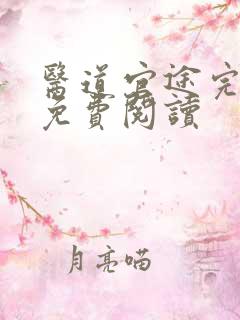 醫道官途完
免費閱讀
月亮喵